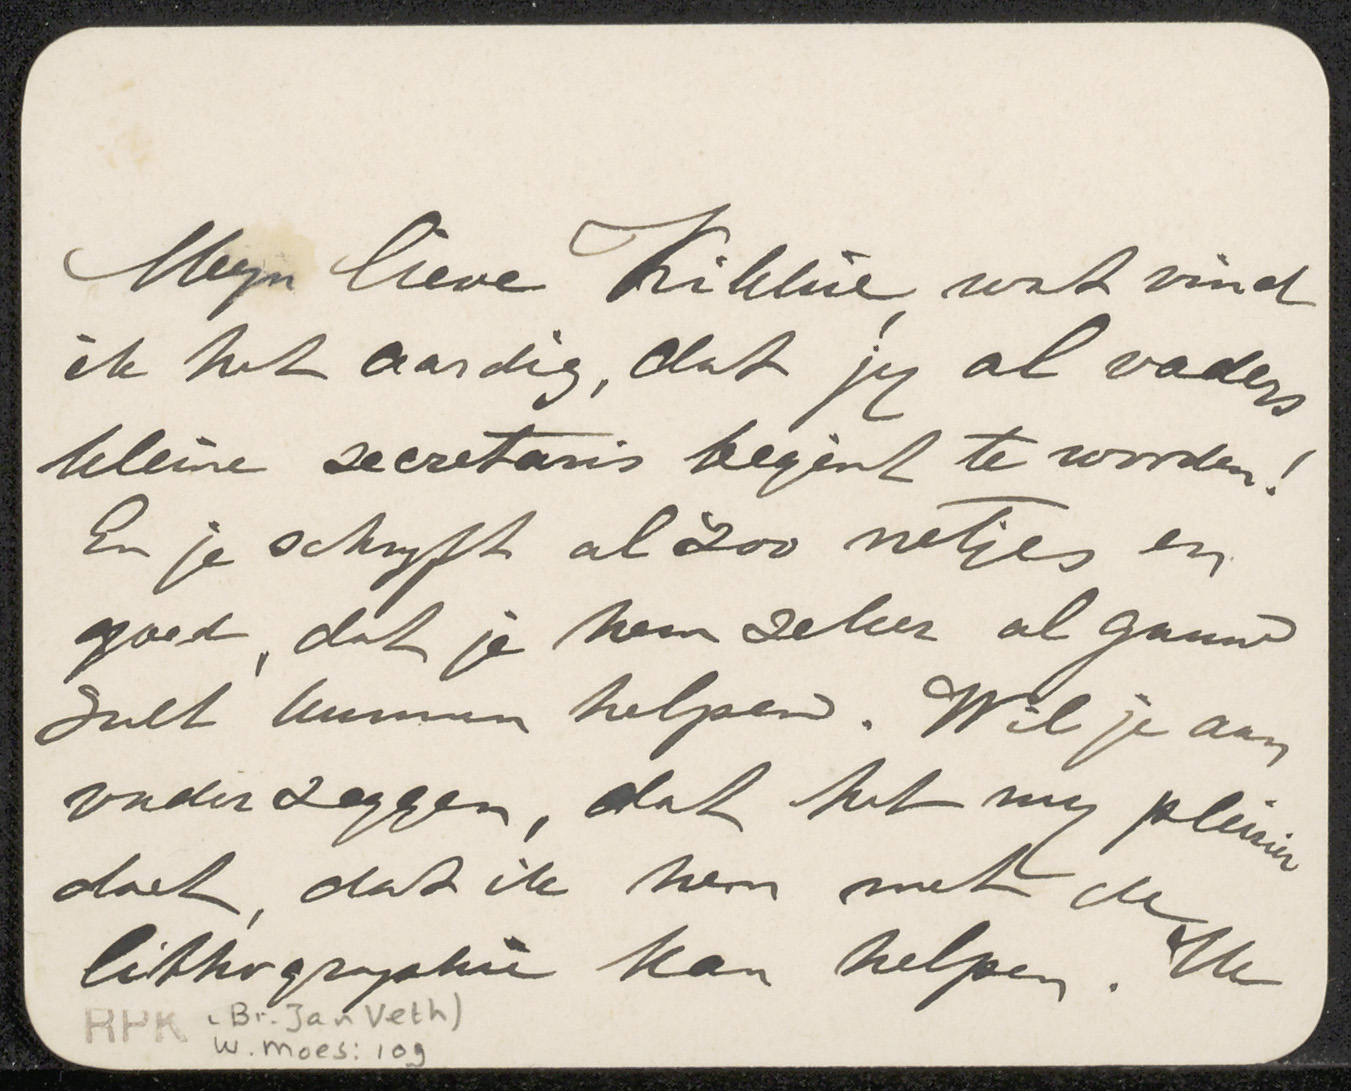 Meyn lieve Kikkie, wat vind
ik het aardig, dat jy al vaders
kleine secretaris begint te worden!
En je schryft al zoo netjes en
goed, dat je hem zeker al gauw
zult kunnen helpen. Wil je aan
vader zeggen, dat het my pleizier
doet, dat ik hem met de
lithographie kan helpen. Ik
RPK (Br. Jan Veth)
W. Moes: 109